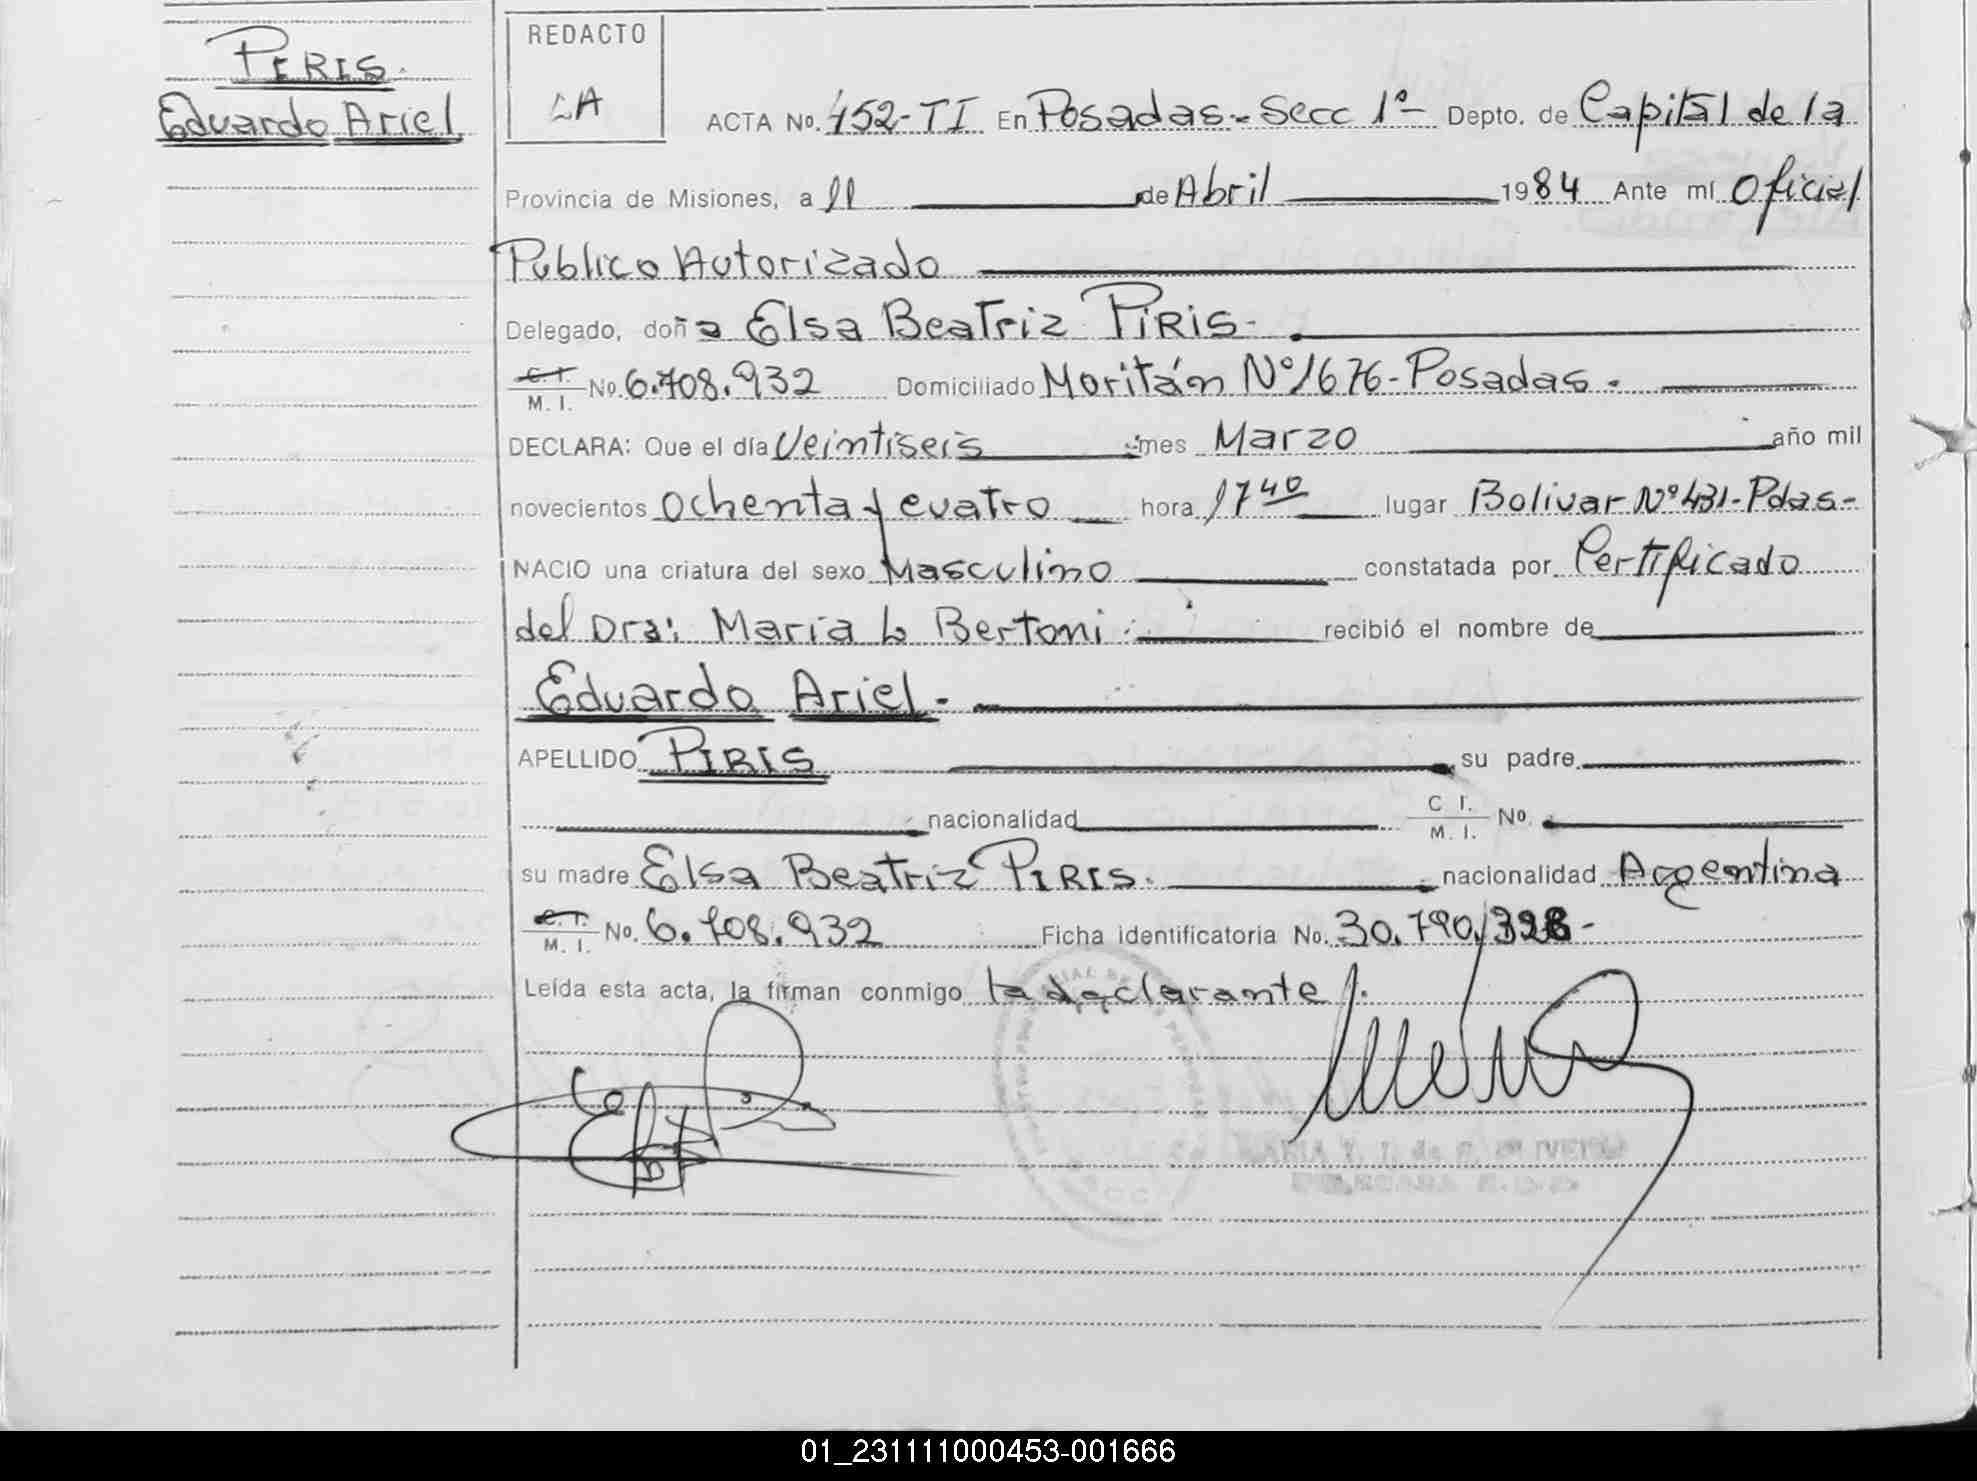 PERIS.
Eduardo Ariel
REDACTO
LA
ACTA No. 452-TI En Posadas-Secc 1º- Depto. de Capital de la
Provincia de Misiones, a 11 de Abril 1984 Ante mí Oficial
Publico Autorizado
Delegado, doña Elsa Beatriz PIRIS-
C. I. M. I. No. 6.708.932 Domiciliado Moritán Nº1676-Posadas.
DECLARA: Que el día Veintiseis mes Marzo año mil
novecientos Ochenta y cuatro hora 17 40 lugar Bolivar Nº431-Pdas-
NACIO una criatura del sexo Masculino constatada por Certificado
del Dra: María L Bertoni. recibió el nombre de
Eduardo Ariel-
APELLIDO PIRIS su padre
nacionalidad C I. M. I. No.
su madre Elsa Beatriz PIRIS. nacionalidad Argentina
C. I. M. I. No. 6.708.932 Ficha identificatoria No. 30.790.328-
Leída esta acta, la firman conmigo la declarante.
01_231111000453-001666